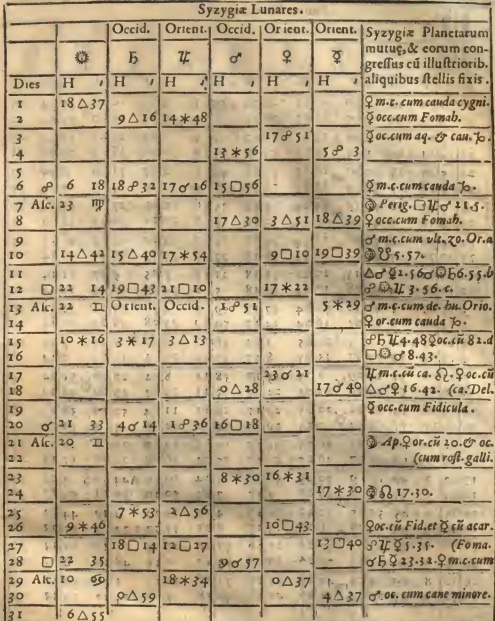 Syzygiæ Lunares.
Occid. Orient. Occid. Orient. Orient. Syzygiæ Planetarum
☉ ♄ ♃ ♂ ♀ ☿ mutuę, & eorum con-
gressus cū illustriorib.
Dies H ′ H ′ H ′ H ′ H ′ H ′ aliquibus stellis fixis.
1 18△37 ♀ m.c. cum cauda cygni.
2 9△16 14✶48 ♀ occ.cum Fomah.
3 17☍51 ☿ oc.cum aq. & cau. ♑.
4 13✶56 5☍ 3
5
6 ☍ 6 18 18☍32 17☌16 15□56 ☿ m.c.cum cauda ♑.
7 Asc. 23 ♍ Perig. □♃♂ 21.5.
8 17△30 3△51 18△39 ♀ occ.cum Fomah.
9 ♂ m.c.cum vlt. 20. Or.a
10 14△42 15△40 17✶54 9□10 19□39 ☋ 5.57.
11 △♂☿2.56☌☉♄6.55.b
12 □ 22 14 19□43 21□10 17✶22 ☍☉♃ 3.56.c.
13 Asc. 22 ♊ Orient. Occid. 1☍51 5✶29 ♂ m.c.cum de. hu. Orio.
14 ♀ or.cum cauda ♑.
15 10✶16 3✶17 3△13 ☍♄♃4.48 ☿oc.cū 82.d
16 □☉♂ 8.43.
17 23☌21 ♃ m.c.cū ca. ♌. ♀ oc.cū
18 0△28 17☌40 △♂♀ 16.42. (ca.Del.
19 ☿ occ.cum Fidicula.
20 ☌ 21 33 4☌14 1☍36 16□18
21 Asc. 20 ♊ Ap. ♀ or.cū 20. & oc.
22 (cum rost. galli.
23 8✶30 16✶31
24 17✶30 ☊ 17.30.
25 7✶53 2△56
26 9✶46 10□43. ♀oc.cū Fid.et ☿ cū acar.
27 18□14 12□27 13□40 ☍♃☿5.35. (Foma.
28 □ 22 35 9☌57 ☌♄♀ 23.32. ♀ m.c.cum
29 Asc. 10 ♋ 18✶34 0△37
30 0△59 4△37 ♂ oc. cum cane minore.
31 6△55